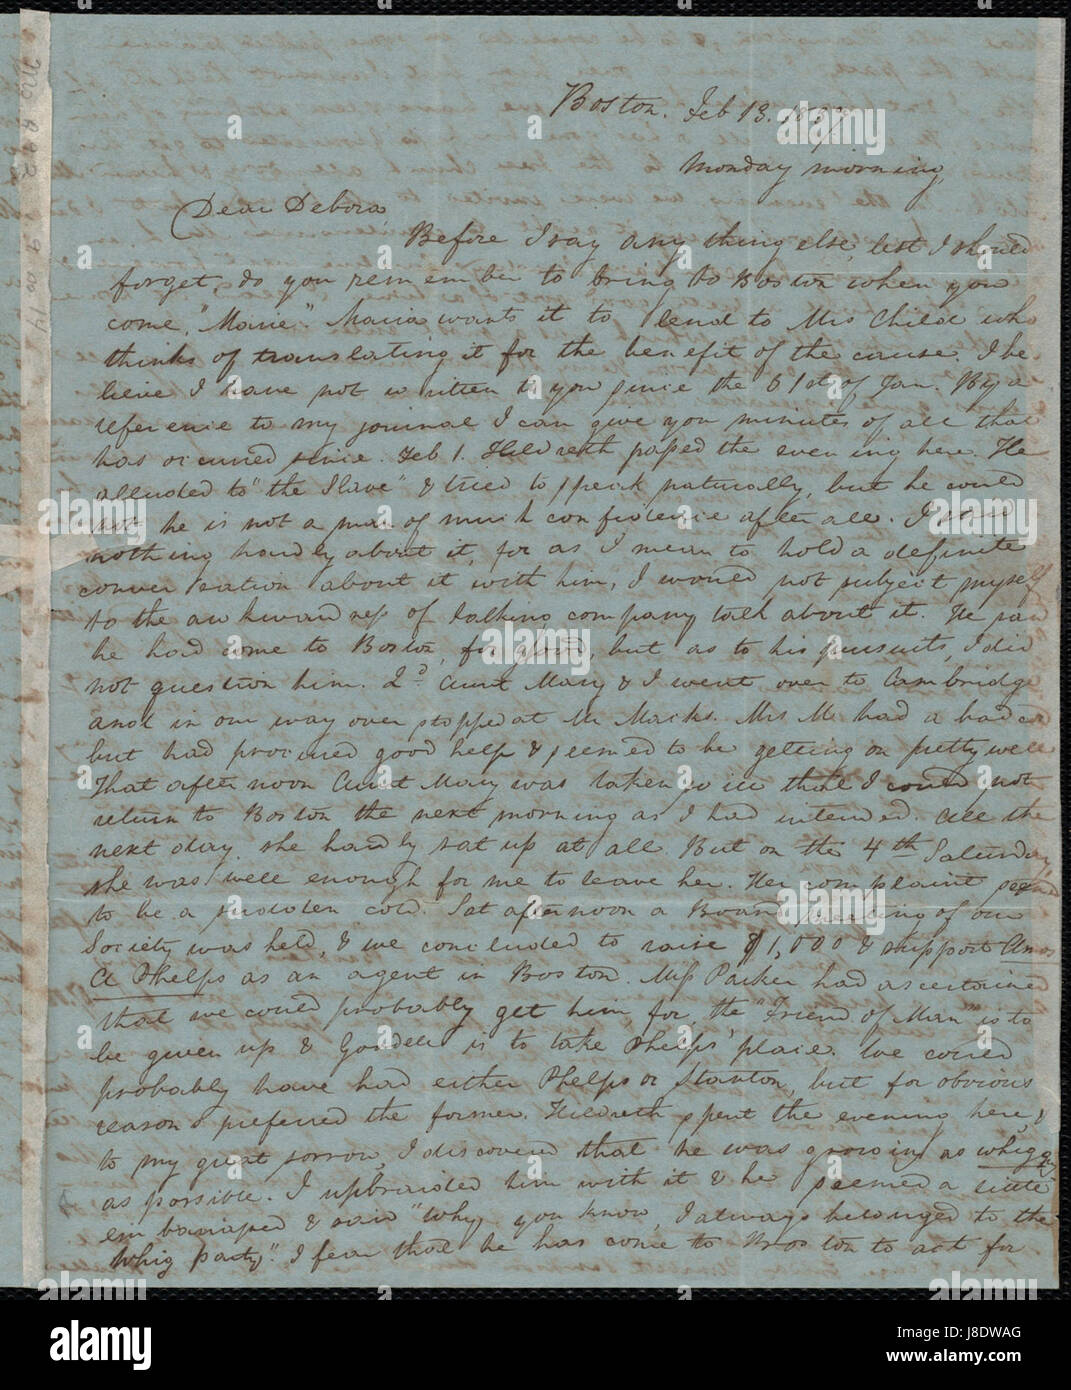 Boston. Feb 13. 1837.
Monday morning,
Dear Debora
Before I say any thing else, lest I should
forget, do you remember to bring to Boston when you
come, "Marie". Maria wants it to lend to Mrs Child who
thinks of translating it for the benefit of the cause. I be-
lieve I have not written to you since the 31st of Jan. By a
reference to my journal I can give you minutes of all that
has occurred since. Feb 1. Hildreth passed the evening here. He
alluded to "the Slave" & tried to speak naturally, but he could
not he is not a man of much confidence after all. I said
nothing hardly about it, for as I mean to hold a definite
conversation about it with him, I would not subject myself
to the awkwardness of talking company talk about it. He said
he had come to Boston, for good, but as to his pursuits, I did
not question him. 2d Aunt Mary & I went over to Cambridge
and in our way over stopped at Mr Marks. Mrs M. had a bad
but had procured good help & seemed to be getting on pretty well
That afternoon Aunt Mary was taken so ill that I could not
return to Boston the next morning as I had intended. All the
next day she hardly sat up at all But on the 4th Saturday,
she was well enough for me to leave her. Her complaint seemed
to be a sudden cold. Sat afternoon a Board meeting of our
Society was held, & we concluded to raise $1,000 & support Amos
A Phelps as an agent in Boston. Miss Parker had ascertained
that we could probably get him, for the "Friend of Man" is to
be given up & Goodell is to take Phelps' place. We could
probably have had either Phelps or Stanton, but for obvious
reasons preferred the former. Hildreth spent the evening here, &
to my great sorrow, I discovered that he was growing as whiggy
as possible. I upbraided him with it & he seemed a little
embarrassed & said "Why you know, I always belonged to the
Whig party". I fear that he has come to Boston to act for
alamy
Image ID: J8DWAG
www.alamy.com